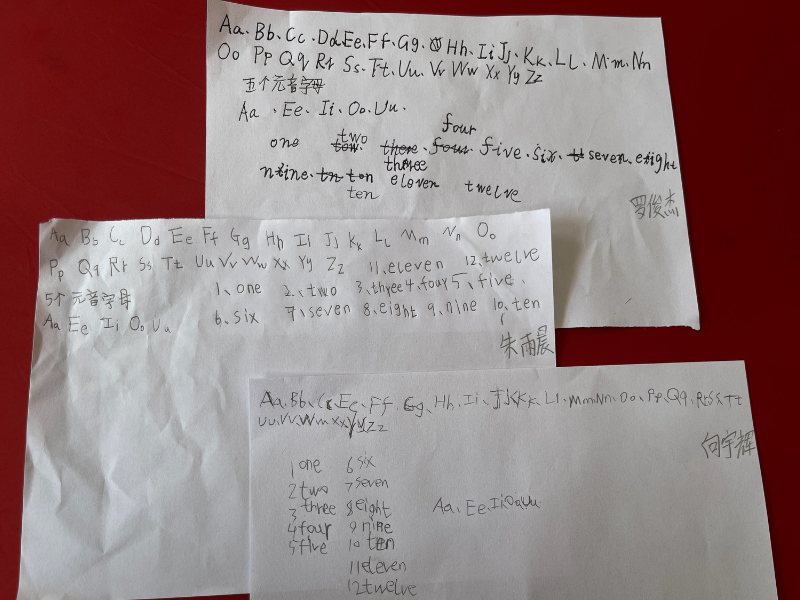 Aa、Bb、Cc、Dd、Ee、Ff、Gg、Hh、Ii、Jj、Kk、Ll、Mm、Nn
Oo Pp Qq Rr Ss、Tt、Uu、Vv Ww Xx Yy Zz
五个元音字母
Aa 、Ee、Ii、Oo、Uu、
four
two
one tow there four five、six、seven、eeight
three
nzine、ten eloven twelve
ten
罗俊杰
Aa Bb Cc Dd Ee Ff Gg Hh Ii Jj Kk Ll Mm Nn Oo
Pp Qq Rr Ss Tt Uu Vv Ww Xx Yy Zz 11、eleven 12、twelve
1、one 2、two 3、three 4、four 5、five、
5个元音字母
Aa Ee Ii Oo Uu 6、six 7、seven 8、eight 9、nine 10、ten
朱雨晨
Aa、Bb、Cc、Ee、Ff、Gg、Hh、Ii、Jj、Kk、Ll、Mm、Nn、Oo、Pp、Qq、Rr、Ss、Tt
Uu、Vv、Ww、Xx、Yy、Zz
向宇辉
1 one 6 six
2 two 7 seven
3 three 8 eight Aa、Ee、Ii Oo Uu
4 four 9 nine
5 five 10 ten
11 eleven
12 twelve